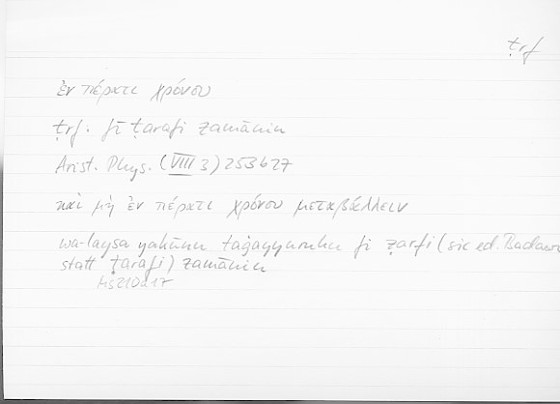 ṭrf
ἐν πέρατι χρόνου
ṭrf. fī ṭarafi zamānin
Arist. Phys. (VIII 3) 253b27
καὶ μὴ ἐν πέρατι χρόνου μεταβάλλειν
wa-laysa yakūnu taġayyuruhu fī ẓarfi (sic ed. Badawi
statt ṭarafi) zamānin
Hs 210a17